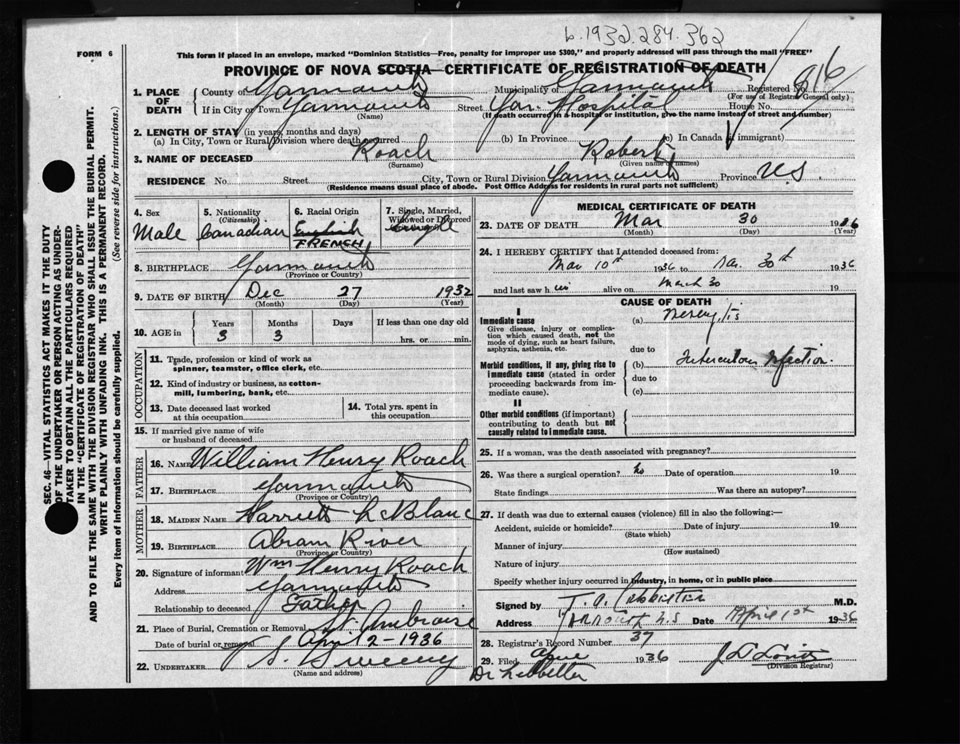 b.1932.284.362
FORM 6
This form if placed in an envelope, marked "Dominion Statistics—Free, penalty for improper use $300," and properly addressed will pass through the mail "FREE"
PROVINCE OF NOVA SCOTIA CERTIFICATE OF REGISTRATION OF DEATH
816
1. PLACE OF DEATH
County of Yarmouth Municipality of Yarmouth Registered No.
(For use of Registrar General only)
If in City or Town Yarmouth Street Yar. Hospital House No.
(Name) (If death occurred in a hospital or institution, give the name instead of street and number)
2. LENGTH OF STAY (in years, months and days)
(a) In City, Town or Rural Division where death occurred (b) In Province (c) In Canada (if immigrant)
3. NAME OF DECEASED Roach Robert
(Surname) (Given name or names)
RESIDENCE No. Street City, Town or Rural Division Yarmouth Province N.S.
(Residence means usual place of abode. Post Office Address for residents in rural parts not sufficient)
4. Sex Male
5. Nationality (Citizenship) Canadian
6. Racial Origin English FRENCH
7. Single, Married, Widowed or Divorced Single
8. BIRTHPLACE Yarmouth
(Province or Country)
9. DATE OF BIRTH Dec 27 1932
(Month) (Day) (Year)
10. AGE in Years Months Days If less than one day old
3 3 hrs. or min.
OCCUPATION
11. Trade, profession or kind of work as spinner, teamster, office clerk, etc.
12. Kind of industry or business, as cotton-mill, lumbering, bank, etc.
13. Date deceased last worked at this occupation
14. Total yrs. spent in this occupation
15. If married give name of wife or husband of deceased
FATHER
16. Name William Henry Roach
17. Birthplace Yarmouth
(Province or Country)
MOTHER
18. Maiden Name Harriett LeBlanc
19. Birthplace Abram River
(Province or Country)
20. Signature of informant Wm Henry Roach
Address Yarmouth
Relationship to deceased Father
21. Place of Burial, Cremation or Removal St. Ambroise
Date of burial or removal April 2 - 1936
22. UNDERTAKER Sweeney
(Name and address)
MEDICAL CERTIFICATE OF DEATH
23. DATE OF DEATH Mar 30 1936
(Month) (Day) (Year)
24. I HEREBY CERTIFY that I attended deceased from:
Mar 10th 1936 to 30th 1936
and last saw h im alive on March 30 19
CAUSE OF DEATH
I
Immediate cause
Give disease, injury or complication which caused death, not the mode of dying, such as heart failure, asphyxia, asthenia, etc.
(a) Meningitis
due to
Morbid conditions, if any, giving rise to immediate cause (stated in order proceeding backwards from immediate cause).
(b) Tubercular Infection.
due to
(c)
II
Other morbid conditions (if important) contributing to death but not causally related to immediate cause.
25. If a woman, was the death associated with pregnancy?
26. Was there a surgical operation? no Date of operation 19
State findings Was there an autopsy?
27. If death was due to external causes (violence) fill in also the following:—
Accident, suicide or homicide? Date of injury 19
(State which)
Manner of injury
(How sustained)
Nature of injury
Specify whether injury occurred in industry, in home, or in public place
Signed by T. A. Lebbetter M.D.
Address Yarmouth N.S Date April 1st 1936
28. Registrar's Record Number 37
29. Filed 1936
(Division Registrar)
Dr Lebbetter
SEC. 46—VITAL STATISTICS ACT MAKES IT THE DUTY
OF THE UNDERTAKER OR PERSON ACTING AS UNDER-
TAKER TO OBTAIN ALL THE PARTICULARS REQUIRED
IN THE "CERTIFICATE OF REGISTRATION OF DEATH"
AND TO FILE THE SAME WITH THE DIVISION REGISTRAR WHO SHALL ISSUE THE BURIAL PERMIT.
WRITE PLAINLY WITH UNFADING INK. THIS IS A PERMANENT RECORD.
Every item of information should be carefully supplied. (See reverse side for instructions.)